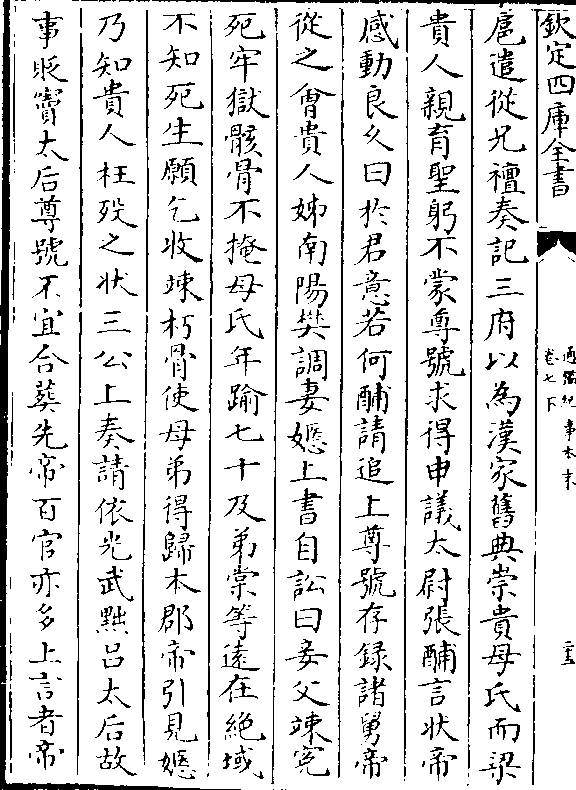 欽定四庫全書
扈遣從兄襢奏記三府以為漢家舊典崇貴母氏而梁
貴人親育聖躬不蒙尊號求得申議太尉張酺言狀帝
感動良乆曰於君意若何酺請追上尊號存録諸舅帝
從之㑹貴人姊南陽樊調妻嫕上書自訟曰妾父竦寃
死牢獄骸骨不掩母氏年踰七十及弟棠等遠在絶域
不知死生願乞收竦朽骨使母弟得歸本郡帝引見嫕
乃知貴人枉殁之狀三公上奏請依光武黜吕太后故
事貶竇太后尊號不宜合葬先帝百官亦多上言者帝
通鑑紀事本末
卷七下